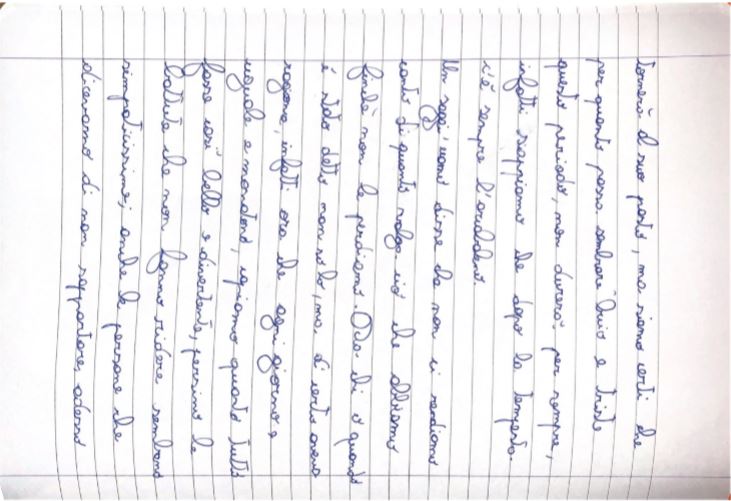 tornerà al suo posto, ma siamo certi che
per quanto possa sembrare buio e triste
questo periodo, non durerà per sempre,
infatti sappiamo che dopo la tempesta
c'è sempre l'arcobaleno.
Un saggio uomo disse che non ci rendiamo
conto di quanto valga ciò che abbiamo
finché non lo perdiamo. Ora chi o quando
è stato detto non si sa, ma di certo aveva
ragione, infatti ora che ogni giorno è
uguale e monotono, capiamo quanto tutto
fosse così bello e divertente, persino le
battute che non fanno ridere sembrano
simpaticissime; anche le persone che
dicevamo di non sopportare, adesso